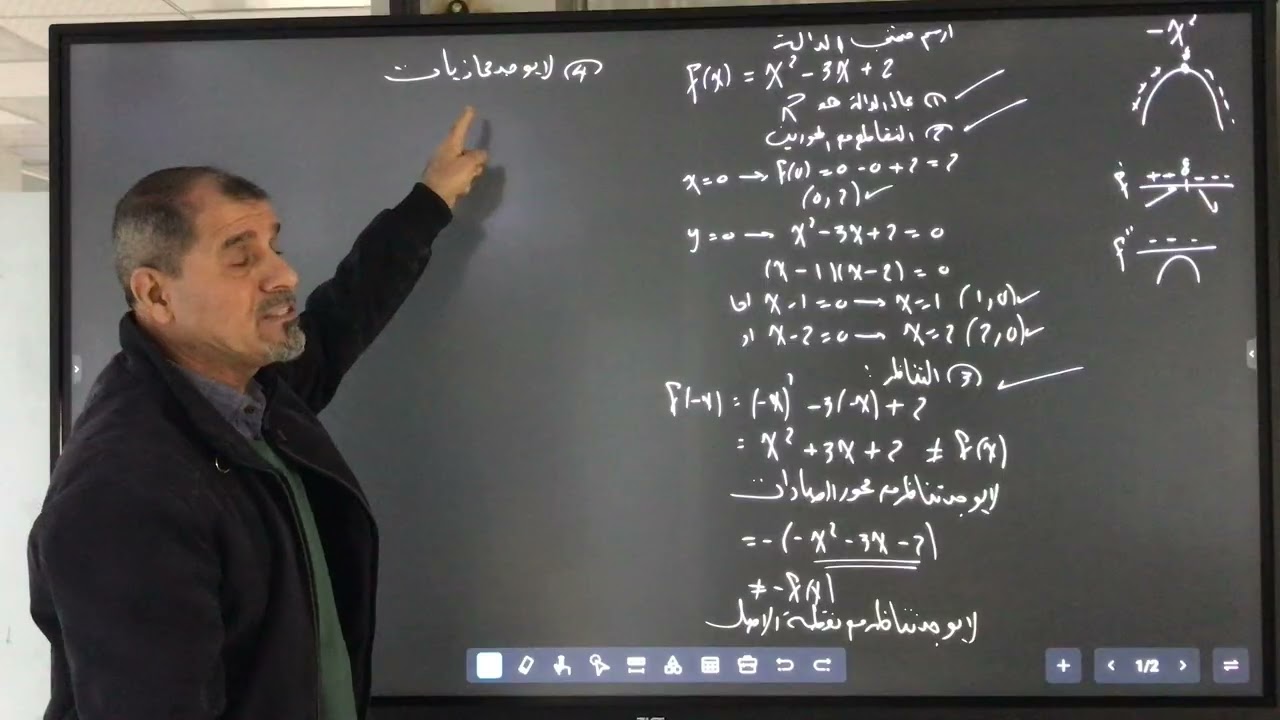 ارسم منحني الدالة
f(x) = x² - 3x + 2
① مجال الدالة هو R
② التقاطع مع المحورين
x=0 → f(0) = 0 - 0 + 2 = 2
(0,2) ✓
y=0 → x² - 3x + 2 = 0
(x-1)(x-2) = 0
اما x-1=0 → x=1 (1,0) ✓
او x-2=0 → x=2 (2,0) ✓
③ التناظر :
f(-x) = (-x)² - 3(-x) + 2
= x² + 3x + 2 ≠ f(x)
لا يوجد تناظر مع محور الصادات
= -(-x² - 3x - 2)
≠ -f(x)
لا يوجد تناظر مع نقطة الاصل
④ لا يوجد محاذيات
-x²
f' ++ ---
f'' ---
1/2